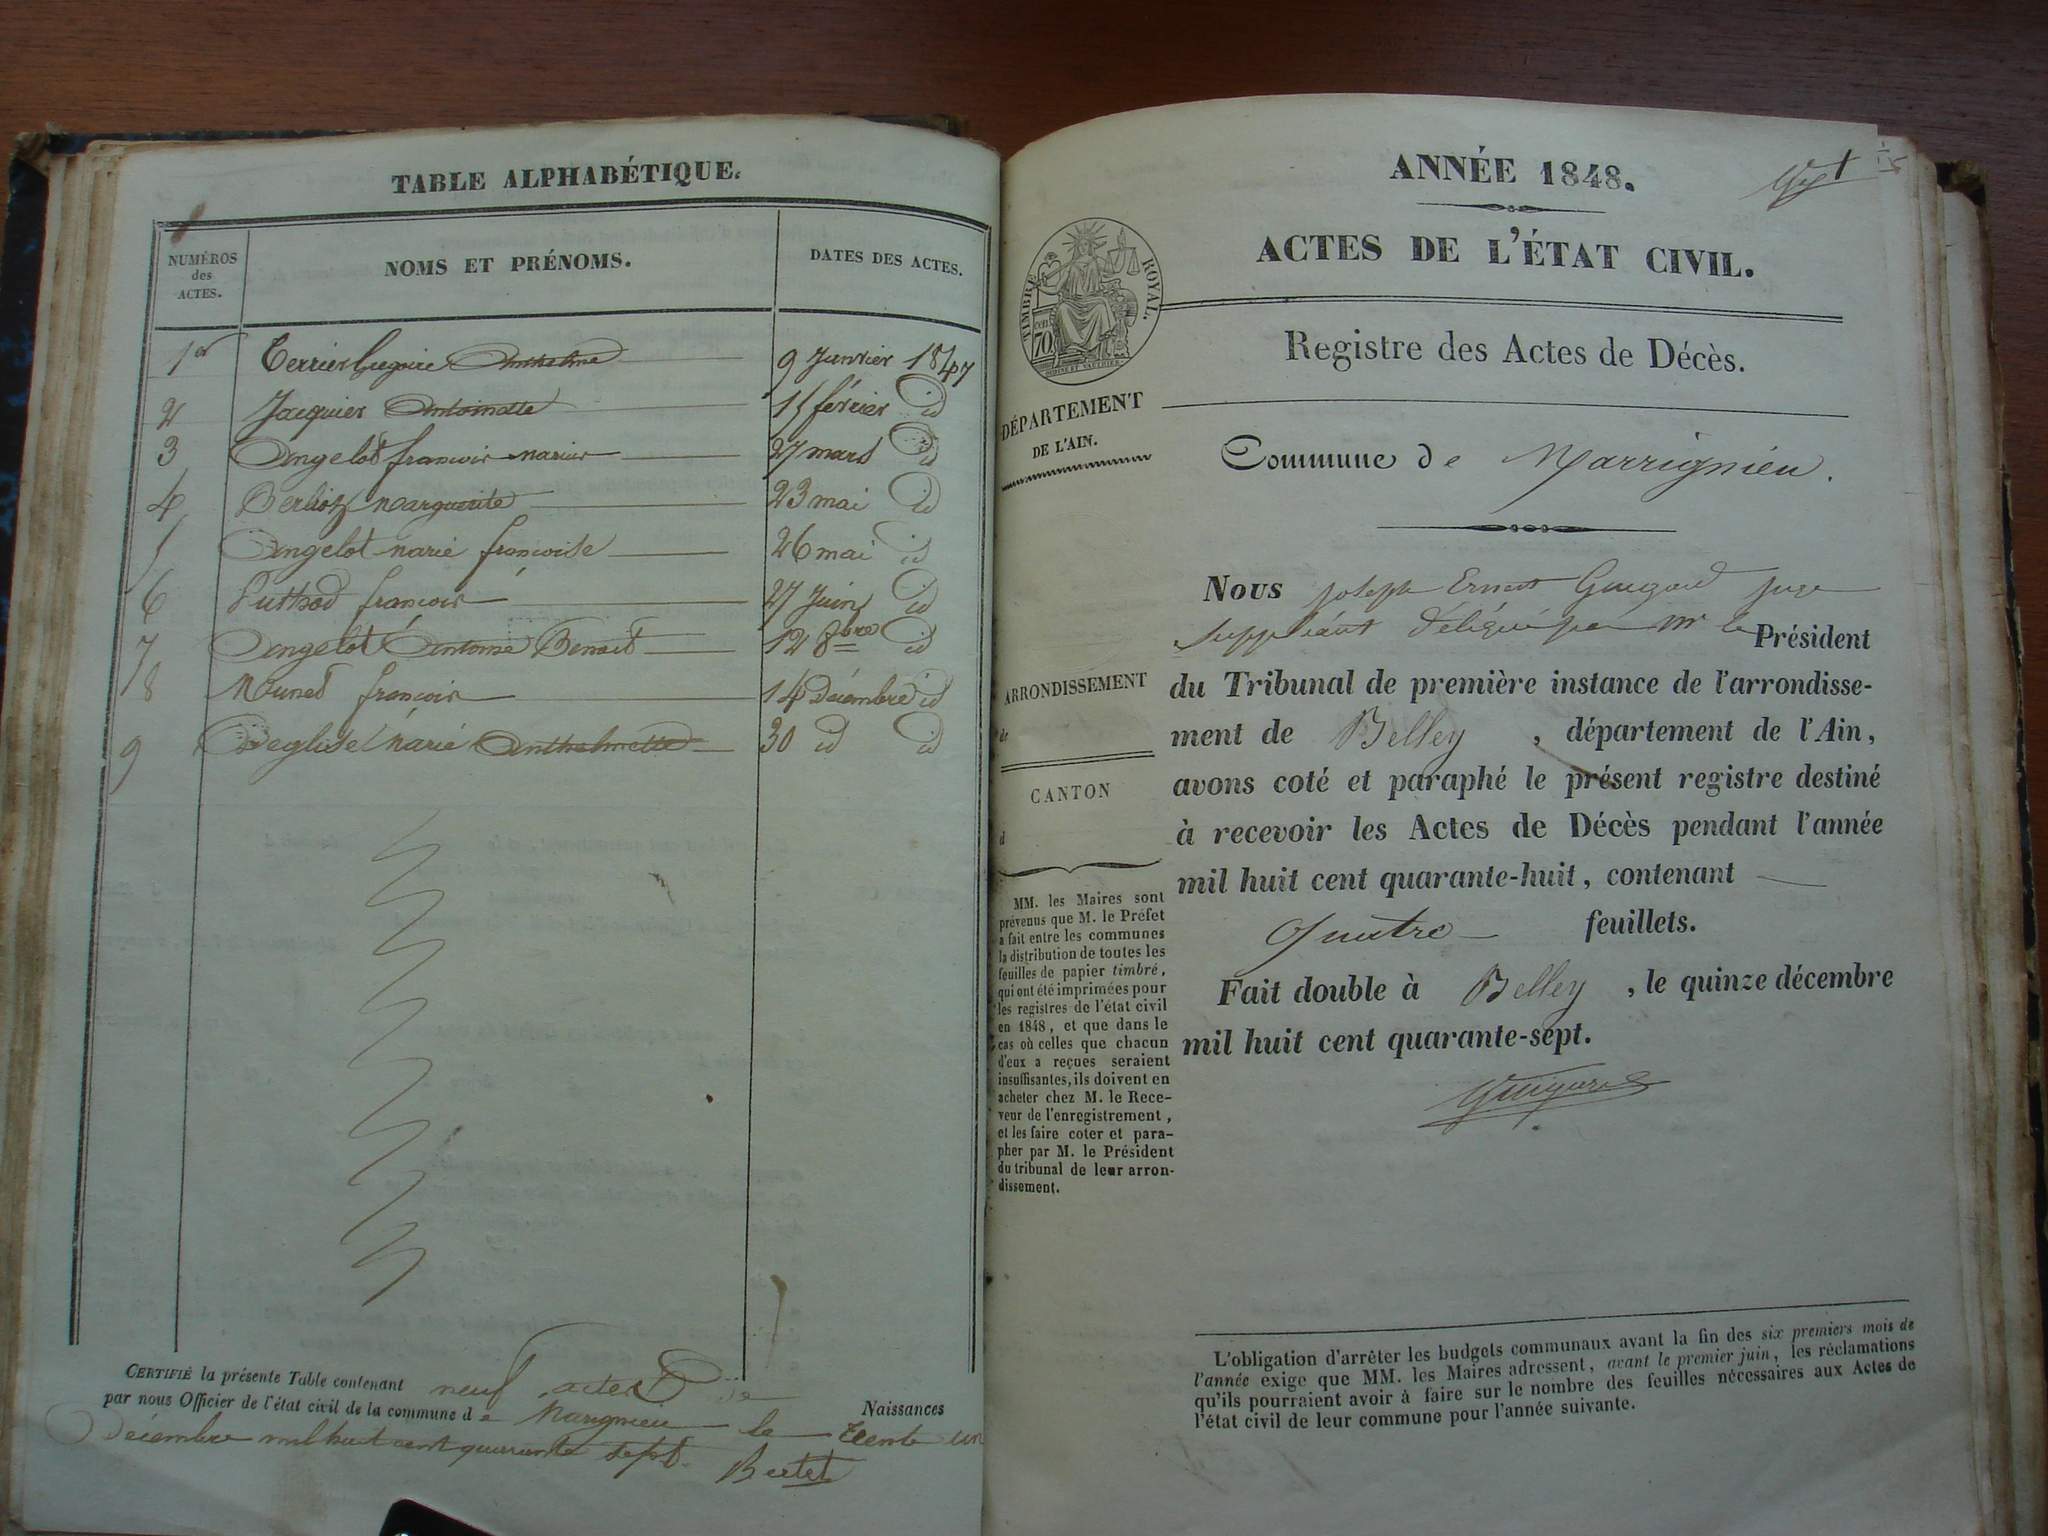 TABLE ALPHABÉTIQUE.
NUMÉROS
des
ACTES.
NOMS ET PRÉNOMS.
DATES DES ACTES.
1er Terrier Gregoire Anthelme 9 Janvier 1847
2 Jacquier Antoinette 15 février id
3 Angelot françois marius 27 mars id
4 Berlioz Marguerite 23 mai id
5 Angelot marie françoise 26 mai id
6 Puthod françois 27 Juin id
7 Angelot Antoine Benoit 12 8bre id
8 Munet françois 14 Décembre id
9 Deglise Marie Anthelmette 30 id id
CERTIFIÉ la présente Table contenant neuf actes de
Naissances
par nous Officier de l'état civil de la commune de Marignieu le Trente un
Décembre mil huit cent quarante sept. Bertet
ANNÉE 1848.
ACTES DE L'ÉTAT CIVIL.
TIMBRE ROYAL.
CENT.
70
Registre des Actes de Décès.
DÉPARTEMENT
DE L'AIN.
Commune de Marrignieu.
Nous Joseph Ernest Guigard Juge
Suppléant délégué par Mr le Président
du Tribunal de première instance de l'arrondisse-
ment de Belley, département de l'Ain,
avons coté et paraphé le présent registre destiné
à recevoir les Actes de Décès pendant l'année
mil huit cent quarante-huit, contenant
Quatre feuillets.
Fait double à Belley, le quinze décembre
mil huit cent quarante-sept.
Guigard
ARRONDISSEMENT
de
CANTON
d
MM. les Maires sont
prévenus que M. le Préfet
a fait entre les communes
la distribution de toutes les
feuilles de papier timbré,
qui ont été imprimées pour
les registres de l'état civil
en 1848, et que dans le
cas où celles que chacun
d'eux a reçues seraient
insuffisantes, ils doivent en
acheter chez M. le Rece-
veur de l'enregistrement,
et les faire coter et para-
pher par M. le Président
du tribunal de leur arron-
dissement.
L'obligation d'arrêter les budgets communaux avant la fin des six premiers mois de
l'année exige que MM. les Maires adressent, avant le premier juin, les réclamations
qu'ils pourraient avoir à faire sur le nombre des feuilles nécessaires aux Actes de
l'état civil de leur commune pour l'année suivante.